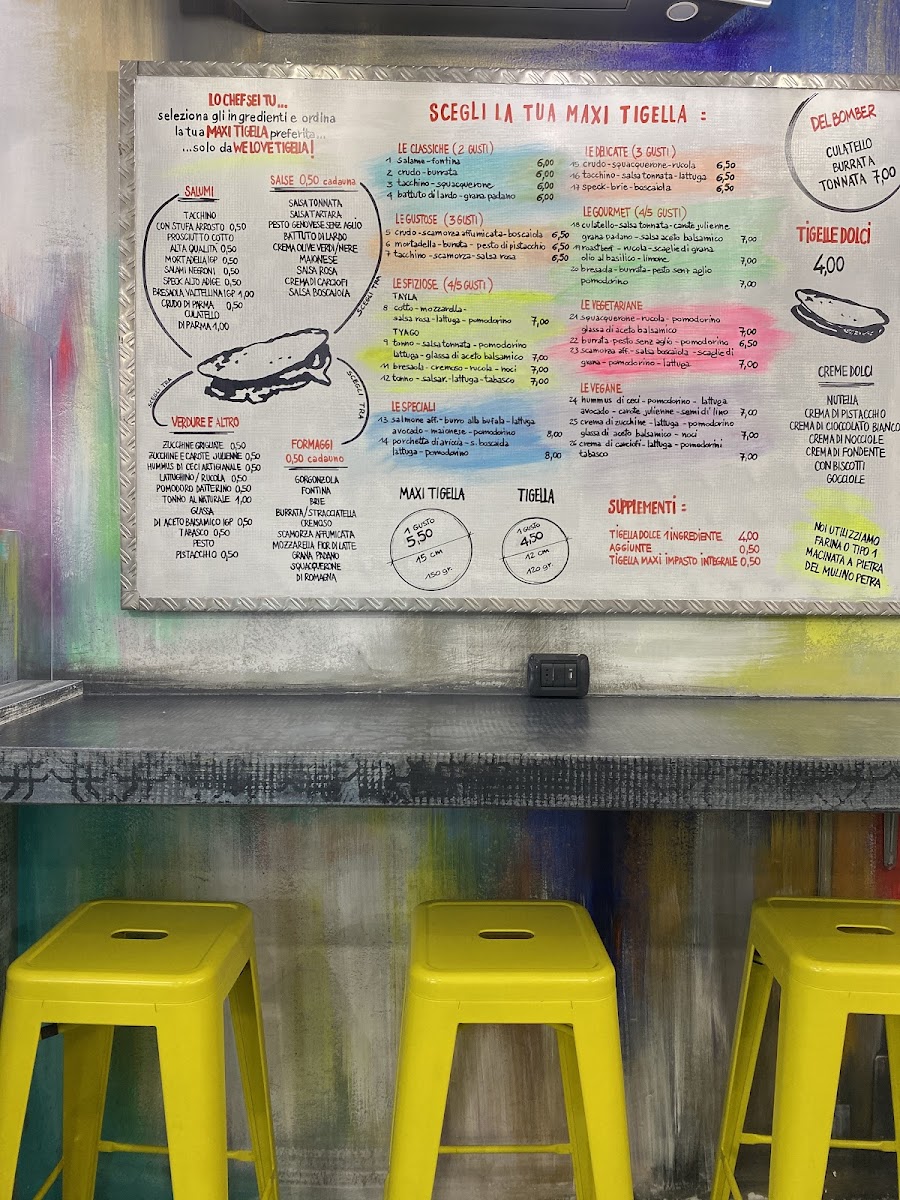 LO CHEF SEI TU...
seleziona gli ingredienti e ordina
la tua MAXI TIGELLA preferita...
...solo da WE LOVE TIGELLA!
SALUMI
TACCHINO
CON STUFA ARROSTO 0,50
PROSCIUTTO COTTO
ALTA QUALITÀ 0,50
MORTADELLA IGP 0,50
SALAMI NEGRONI 0,50
SPECK ALTO ADIGE 0,50
BRESAOLA VALTELLINA IGP 1,00
CRUDO DI PARMA 0,50
CULATELLO
DI PARMA 1,00
SALSE 0,50 cadauna
SALSA TONNATA
SALSA TARTARA
PESTO GENOVESE SENZ'AGLIO
BATTUTO DI LARDO
CREMA OLIVE VERDI/NERE
MAIONESE
SALSA ROSA
CREMA DI CARCIOFI
SALSA BOSCAIOLA
SCEGLI TRA
SCEGLI TRA
SCEGLI TRA
VERDURE E ALTRO
ZUCCHINE GRIGLIATE 0,50
ZUCCHINE E CAROTE JULIENNE 0,50
HUMMUS DI CECI ARTIGIANALE 0,50
LATTUGHINO / RUCOLA 0,50
POMODORO DATTERINO 0,50
TONNO AL NATURALE 1,00
GLASSA
DI ACETO BALSAMICO IGP 0,50
TABASCO 0,50
PESTO
PISTACCHIO 0,50
FORMAGGI
0,50 cadauno
GORGONZOLA
FONTINA
BRIE
BURRATA/STRACCIATELLA
CREMOSO
SCAMORZA AFFUMICATA
MOZZARELLA FIOR DI LATTE
GRANA PADANO
SQUACQUERONE
DI ROMAGNA
SCEGLI LA TUA MAXI TIGELLA :
LE CLASSICHE (2 GUSTI)
1 salame-fontina 6,00
2 crudo-burrata 6,00
3 tacchino-squacquerone 6,00
4 battuto di lardo-grana padano 6,00
LE GUSTOSE (3 GUSTI)
5 crudo-scamorza affumicata-boscaiola 6,50
6 mortadella-burrata-pesto di pistacchio 6,50
7 tacchino-scamorza-salsa rosa 6,50
LE SFIZIOSE (4/5 GUSTI)
TAYLA
8 cotto-mozzarella-
salsa rosa-lattuga-pomodorino 7,00
TYAGO
9 tonno-salsa tonnata-pomodorino
lattuga-glassa di aceto balsamico 7,00
11 bresaola-cremoso-rucola-noci 7,00
12 tonno-salsa r.-lattuga-tabasco 7,00
LE SPECIALI
13 salmone aff.-burro alla bufala-lattuga
avocado-maionese-pomodorino 8,00
14 porchetta di ariccia-s. boscaiola
lattuga-pomodorino 8,00
LE DELICATE (3 GUSTI)
15 crudo-squacquerone-rucola 6,50
16 tacchino-salsa tonnata-lattuga 6,50
17 speck-brie-boscaiola 6,50
LE GOURMET (4/5 GUSTI)
18 culatello-salsa tonnata-carote julienne
grana padano-salsa aceto balsamico 7,00
19 roastbeef-rucola-scaglie di grana
olio al basilico-limone 7,00
20 bresaola-burrata-pesto senz'aglio
pomodorino 7,00
LE VEGETARIANE
21 squacquerone-rucola-pomodorino
glassa di aceto balsamico 7,00
22 burrata-pesto senz'aglio-pomodorino 6,50
23 scamorza aff.-salsa boscaiola-scaglie di
grana-pomodorino-lattuga 7,00
LE VEGANE
24 hummus di ceci-pomodorino-lattuga
avocado-carote julienne-semi di lino 7,00
25 crema di zucchine-lattuga-pomodorino
glassa di aceto balsamico-noci 7,00
26 crema di carciofi-lattuga-pomodorini
tabasco 7,00
MAXI TIGELLA
1 GUSTO
5,50
15 cm
150 gr.
TIGELLA
1 GUSTO
4,50
12 cm
120 gr.
SUPPLEMENTI :
TIGELLA DOLCE 1 INGREDIENTE 4,00
AGGIUNTE 0,50
TIGELLA MAXI IMPASTO INTEGRALE 0,50
DEL BOMBER
CULATELLO
BURRATA
TONNATA 7,00
TIGELLE DOLCI
4,00
CREME DOLCI
NUTELLA
CREMA DI PISTACCHIO
CREMA DI CIOCCOLATO BIANCO
CREMA DI NOCCIOLE
CREMA DI FONDENTE
CON BISCOTTI
GOCCIOLE
NOI UTILIZZIAMO
FARINA DI TIPO 1
MACINATA A PIETRA
DEL MULINO PETRA